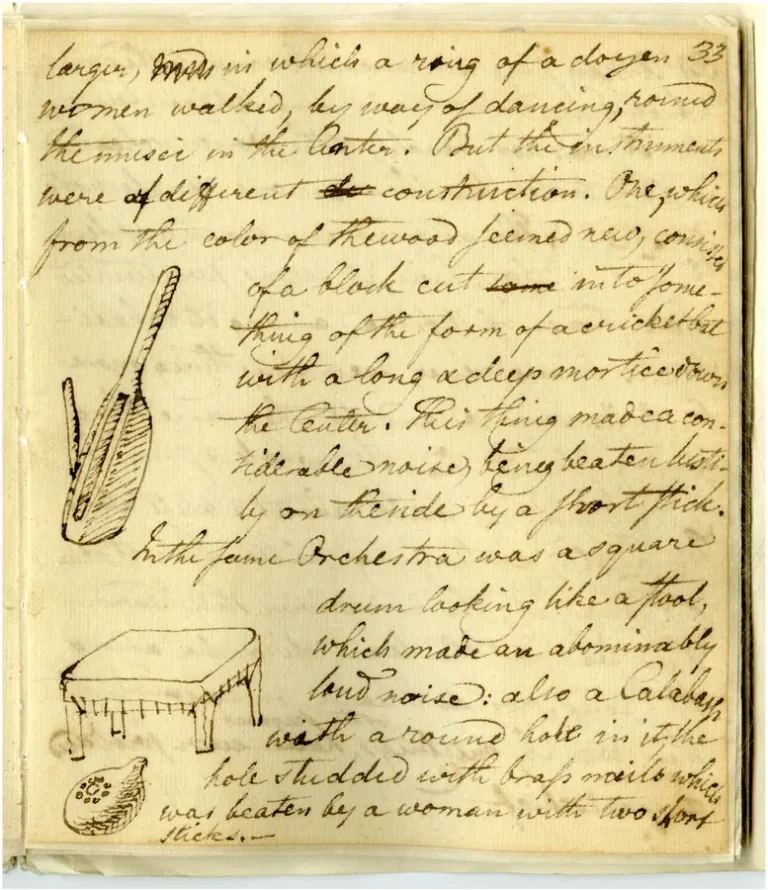 larger, in which a ring of a dozen 33
women walked, by way of dancing, round
the music in the Center. But the instruments
were of different construction. One, which
from the color of the wood seemed new, consisted
of a block cut some into some-
thing of the form of a cricket bat
with a long & deep mortice down
the Center. This thing made a con-
siderable noise, being beaten lusti-
ly on the side by a short stick.
In the same Orchestra was a square
drum looking like a stool,
which made an abominably
loud noise: also a Calabash
with a round hole in it, the
hole studded with brass nails which
was beaten by a woman with two short
sticks.—